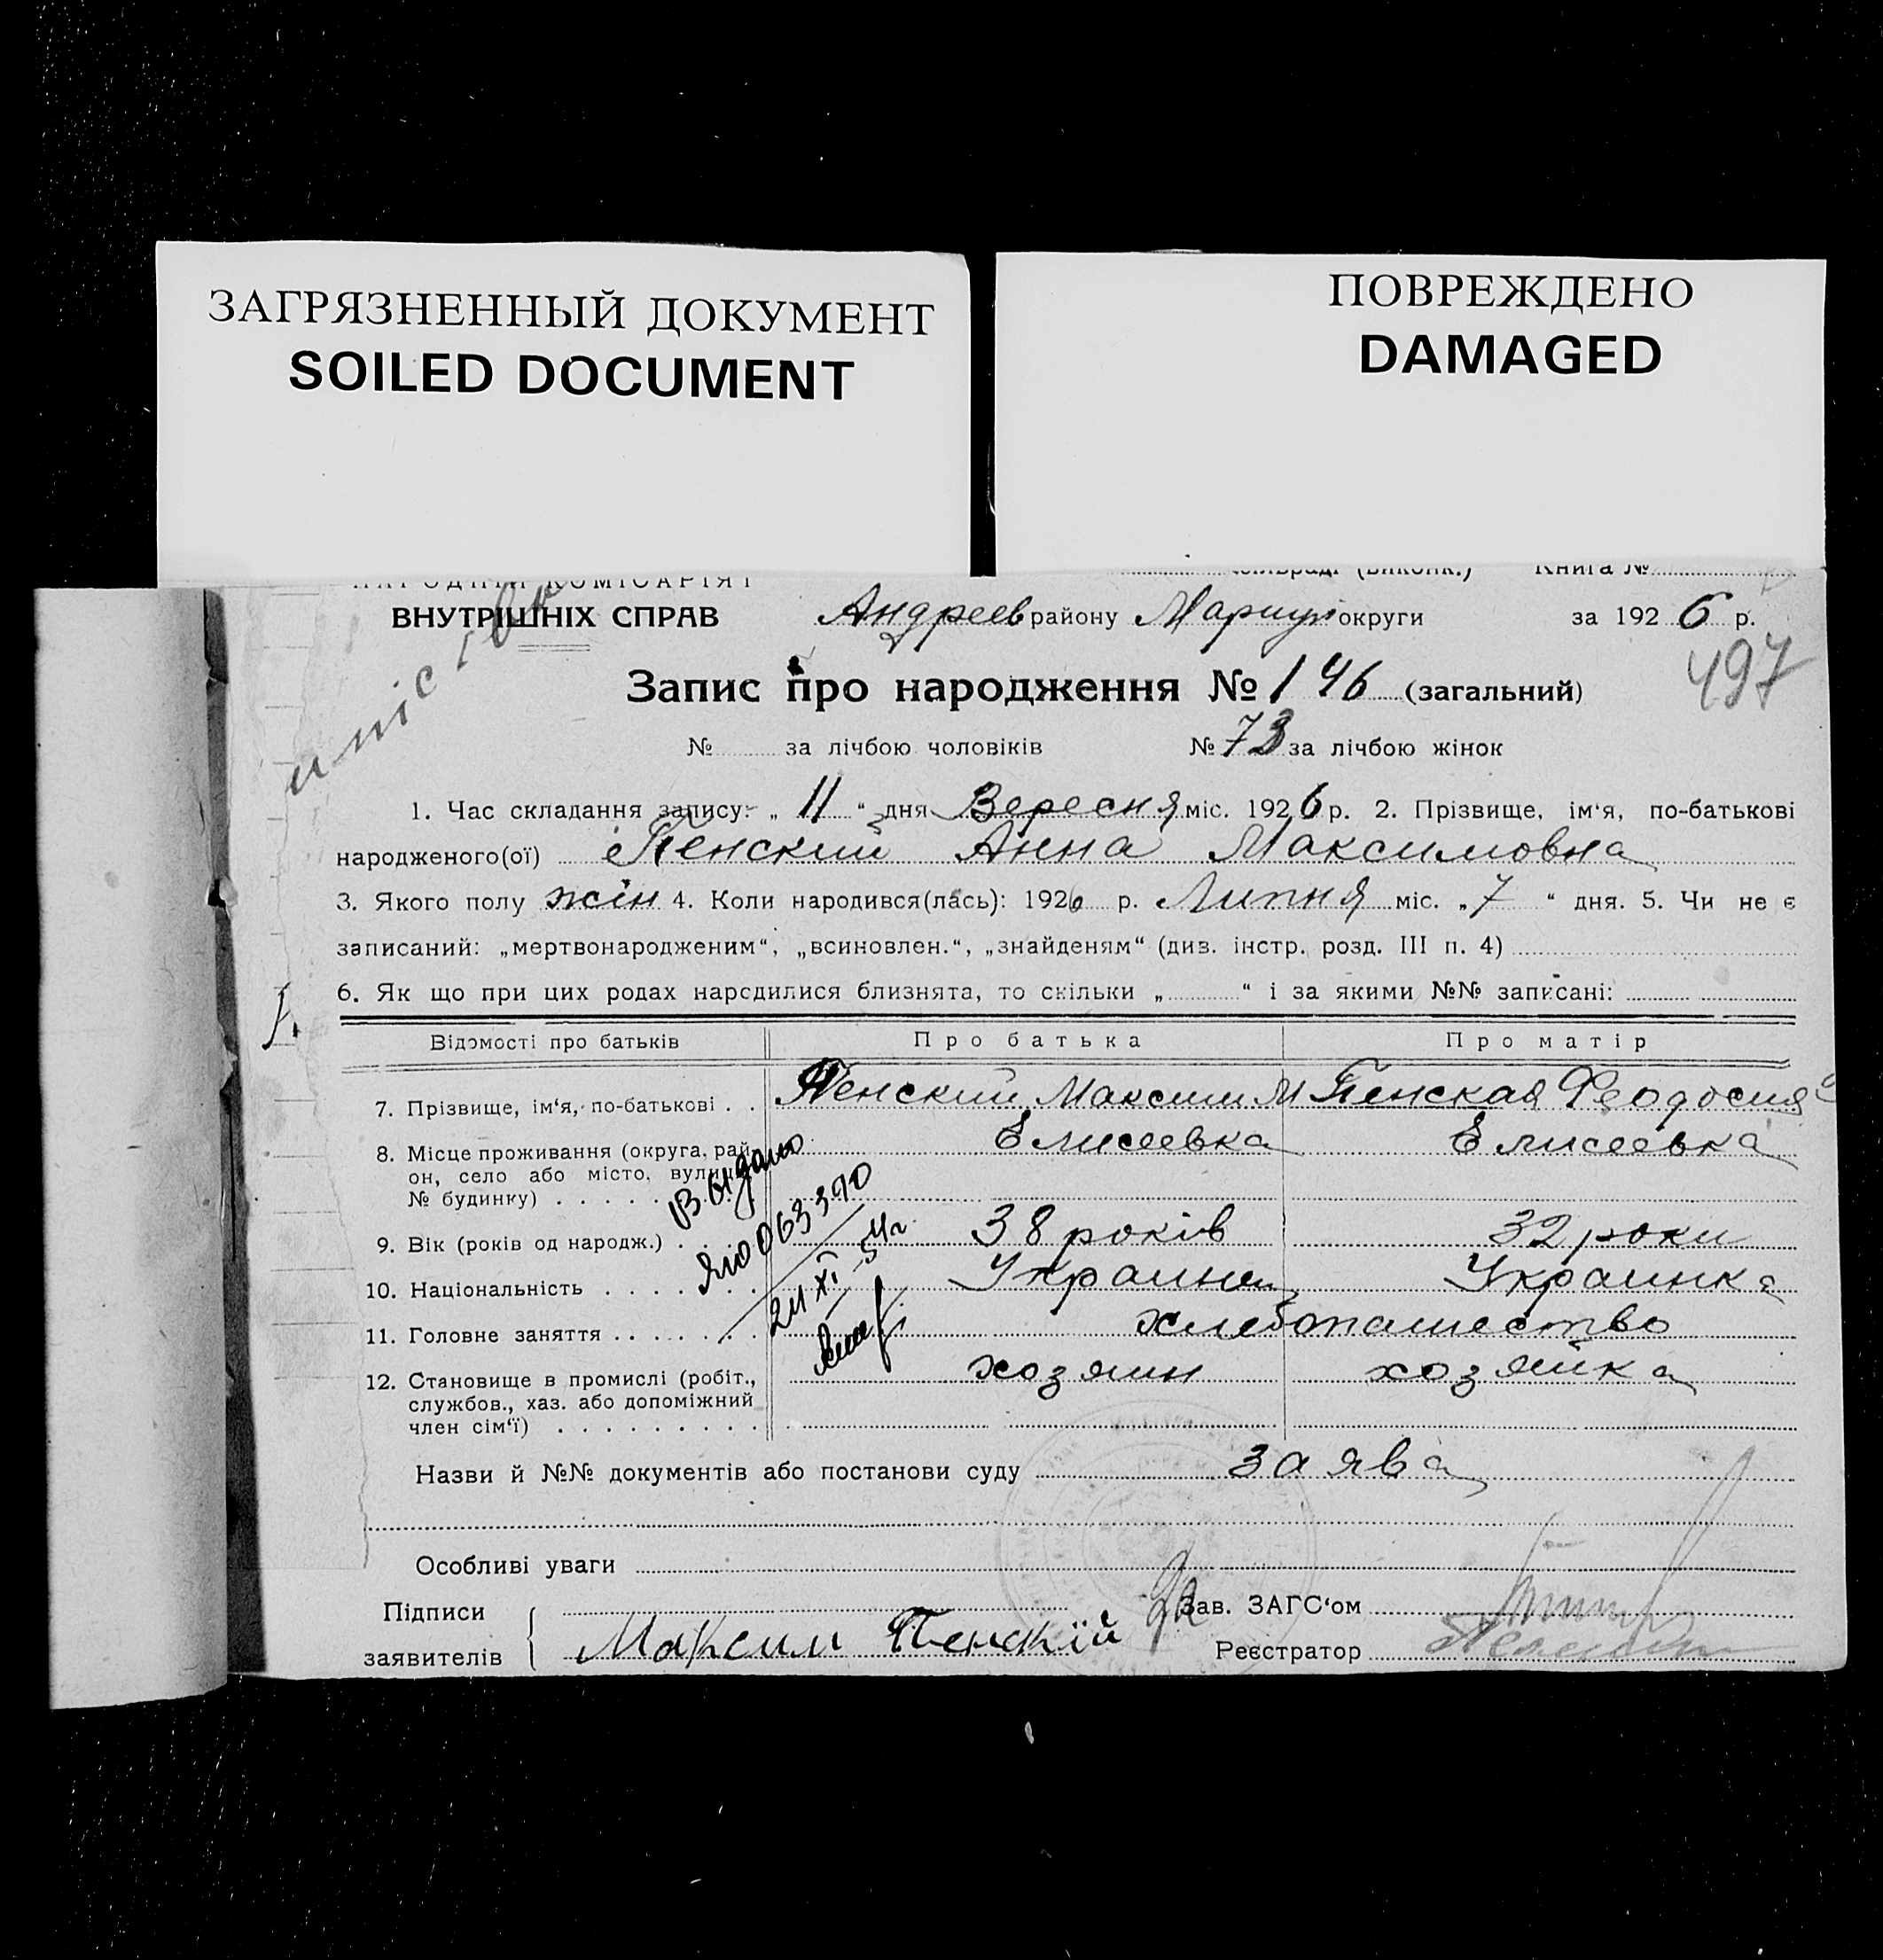 ЗАГРЯЗНЕННЫЙ ДОКУМЕНТ
SOILED DOCUMENT
ПОВРЕЖДЕНО
DAMAGED
НАРОДНІЙ КОМІСАРІЯТ
Книга №
ВНУТРІШНІХ СПРАВ Андреев району Мариуп округи за 1926 р.
497
Запис про народження № 146 (загальний)
№ за лічбою чоловіків № 73 за лічбою жінок
1. Час складання запису: „ 11 “ дня Вересня міс. 1926 р. 2. Прізвище, ім‘я, по-батькові
народженого(ої) Пенский Анна Максимовна
3. Якого полу жін 4. Коли народився(лась): 1926 р. Липня міс. „ 7 “ дня. 5. Чи не є
записаний: „мертвонародженим“, „всиновлен.“, „знайденям“ (див. інстр. розд. III п. 4)
6. Як що при цих родах народилися близнята, то скільки „ “ і за якими №№ записані:
Відомості про батьків Про батька Про матір
7. Прізвище, ім‘я, по-батькові . . Пенский Максим М Пенская Феодосия
8. Місце проживання (округа, рай- Елисеевка Елисеевка
он, село або місто, вулиця
№ будинку) . . . . .
Выдано
ЯЮ 063390
24 XI-54г
9. Вік (років од народж.) . 38 років 32 роки
10. Національність . . . . Украинец Украинка
11. Головне заняття . . . . . . . хлебопашество
12. Становище в промислі (робіт., хозяин хозяйка
службов., хаз. або допоміжний
член сім‘ї) . . . . . . . . .
Назви й №№ документів або постанови суду заява
Особливі уваги
Підписи Зав. ЗАГС‘ом
заявителів Максим Пенскій Реєстратор